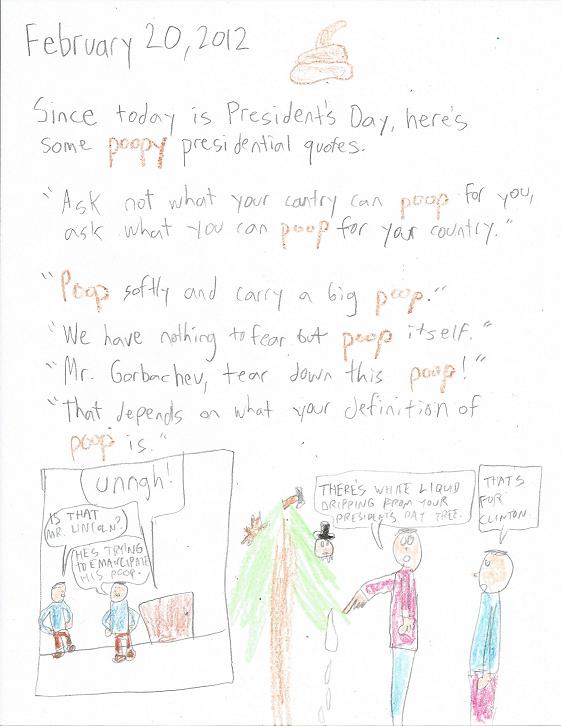 February 20, 2012
Since today is President's Day, here's
some poopy presidential quotes.
"Ask not what your cantry can poop for you,
ask what you can poop for your country."
"Poop softly and carry a big poop."
"We have nothing to fear but poop itself."
"Mr. Gorbachev, tear down this poop!"
"That depends on what your definition of
poop is."
Unngh!
IS THAT
MR. LINCOLN?
HE'S TRYING
TO EMANCIPATE
HIS POOP.
THERE'S WHITE LIQUID
DRIPPING FROM YOUR
PRESIDENTS DAY TREE.
THATS
FOR
CLINTON.